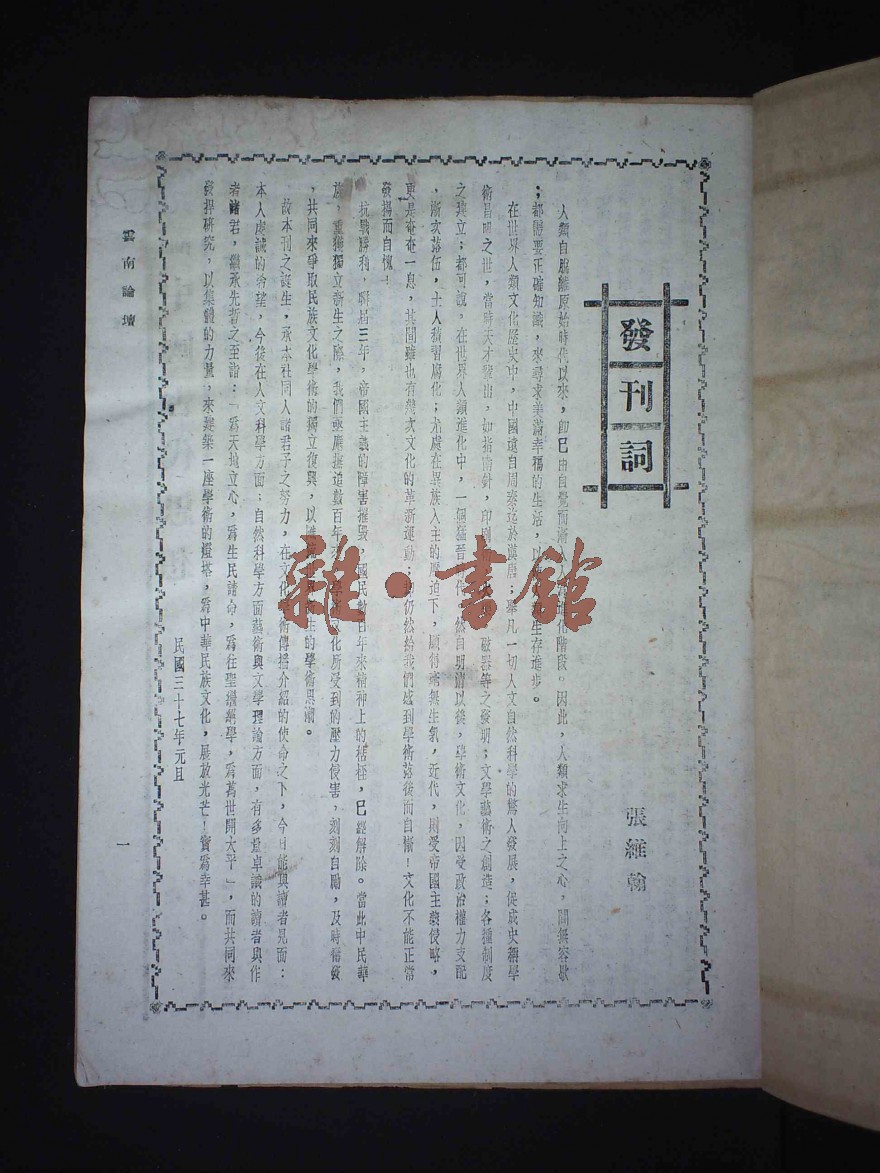 發刊詞
張維翰
人類自脫離原始時代以來，卽已由自覺而漸入人爲進化階段。因此，人類求生向上之心，間無容歇
；都需要正確知識，來尋求美滿幸福的生活，以生存進步。
在世界人類文化歷史中，中國遠自周秦迄於漢唐；舉凡一切人文自然科學的驚人發展，促成史稱學
術昌明之世，當時天才輩出，如指南針，印刷磁器等之發明；文學藝術之創造；各種制度
之建立；都可說，在世界人類進化中，一個猛晉然自明淸以後，學術文化，因受政治權力支配
，漸次落伍，士人積習腐化；尤處在異族入主的壓迫下，顯得毫無生氣，近代，則受帝國主義侵略，
更是奄奄一息，其間雖也有幾次文化的革新運動；仍然給我們感到學術落後而自慚！文化不能正常
發揚而自愧！
抗戰勝利，瞬屆三年，帝國主義的障害摧毀，國民數百年來精神上的桎梏，已經解除。當此中民華
族，重獲獨立新生之際，我們亟應撫追數百年來學術文化所受到的壓力侵害，刻刻自勵，及時奮發
，共同來爭取民族文化學術的獨立復興，以生的學術思潮。
故本刊之誕生，承本社同人諸君子之努力，在文化學術傳播介紹的使命之下，今日能與讀者見面；
本人虔誠的希望，今後在人文科學方面；自然科學方面藝術與文學理論方面，有多量卓識的讀者與作
者諸君，繼承先哲之至語：「爲天地立心，爲生民請命，爲往聖繼絕學，爲萬世開太平」，而共同來
發揮研究，以集體的力量，來建築一座學術的燈塔，爲中華民族文化，展放光芒！實爲幸甚。
民國三十七年元旦
雲南論壇
一
雜·書館